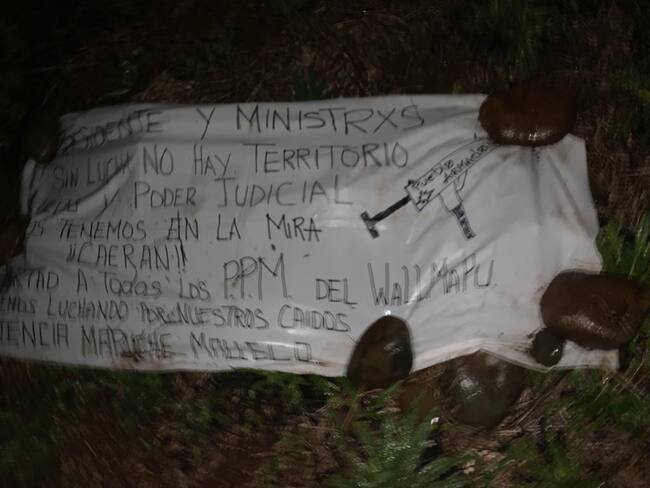 SIDENTE Y MINISTRXS
SIN LUCHA NO HAY TERRITORIO
Y PODER JUDICIAL
S TENEMOS EN LA MIRA
¡¡CAERAN!!
RTAD A TODOS LOS P.P.M. DEL WALLMAPU
EMOS LUCHANDO POR NUESTROS CAIDOS
TENCIA MAPUCHE MALLECO
PUEBLO
ARMADO